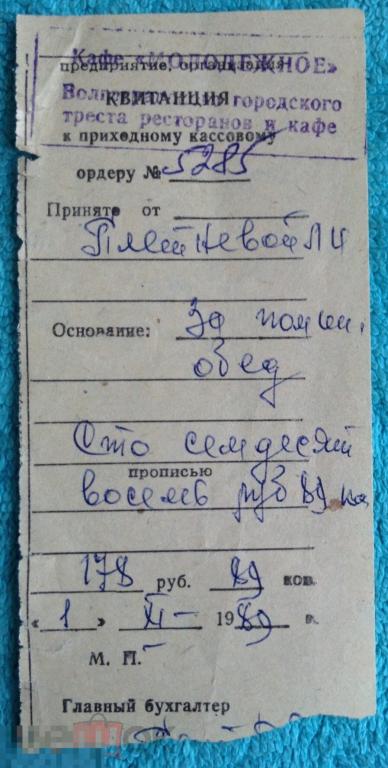 Кафе «МОЛОДЕЖНОЕ»
предприятие, организация
КВИТАНЦИЯ
городского
треста ресторанов и кафе
к приходному кассовому
ордеру № 5285
Принято от
Плетневой Л И
Основание: За помин.
обед
Сто семдесят
прописью
восемь руб 89 коп
178 руб. 89 коп.
« 1 » XI - 1989 г.
М. П.
Главный бухгалтер